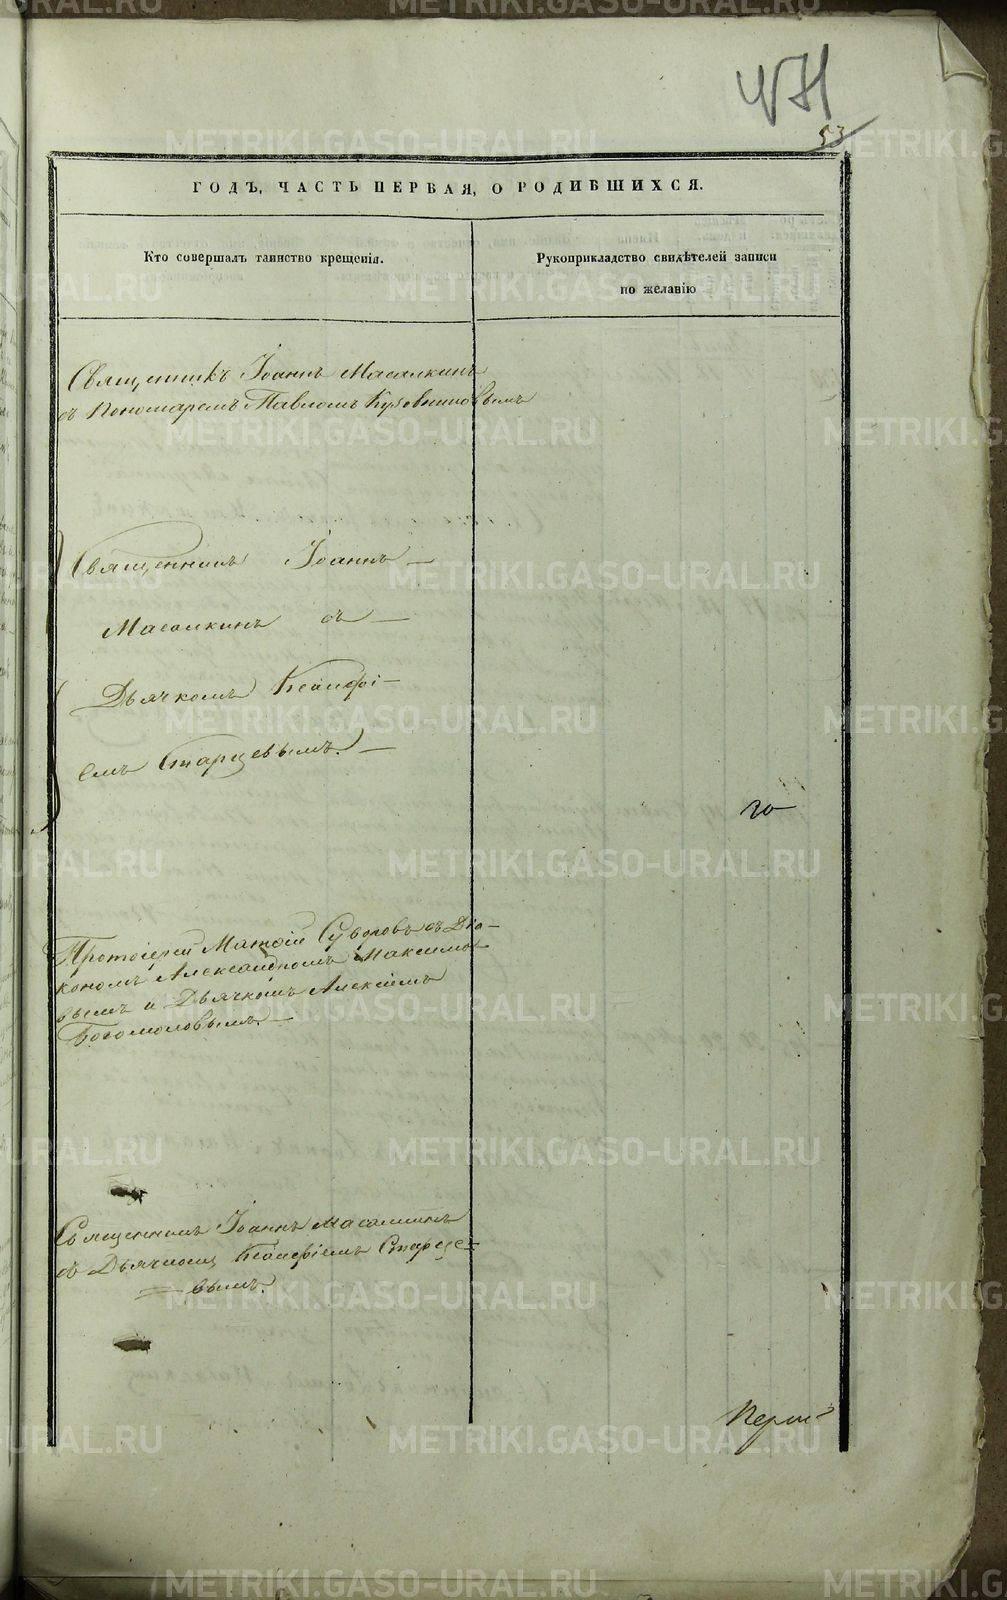 53
ГОДЪ, ЧАСТЬ ПЕРВАЯ, О РОДИВШИХСЯ.
Кто совершалъ таинство крещенія.
Рукоприкладство свидѣтелей записи
по желанію
Священникъ Іоаннъ Масалкинъ
съ Пономаремъ Павломъ
Священникъ Іоаннъ
Масалкинъ съ
Дьячкомъ Ксанфі-
емъ Старцевымъ.
Протоіерей Матфій Суворовъ съ Діа-
кономъ Александромъ Максимо
вымъ и Дьячкомъ Алексіемъ
Богомоловымъ.
Священникъ Іоаннъ Масалкинъ
съ Дьячкомъ Ксанфіемъ Старце-
вымъ.
METRIKI.GASO-URAL.RU